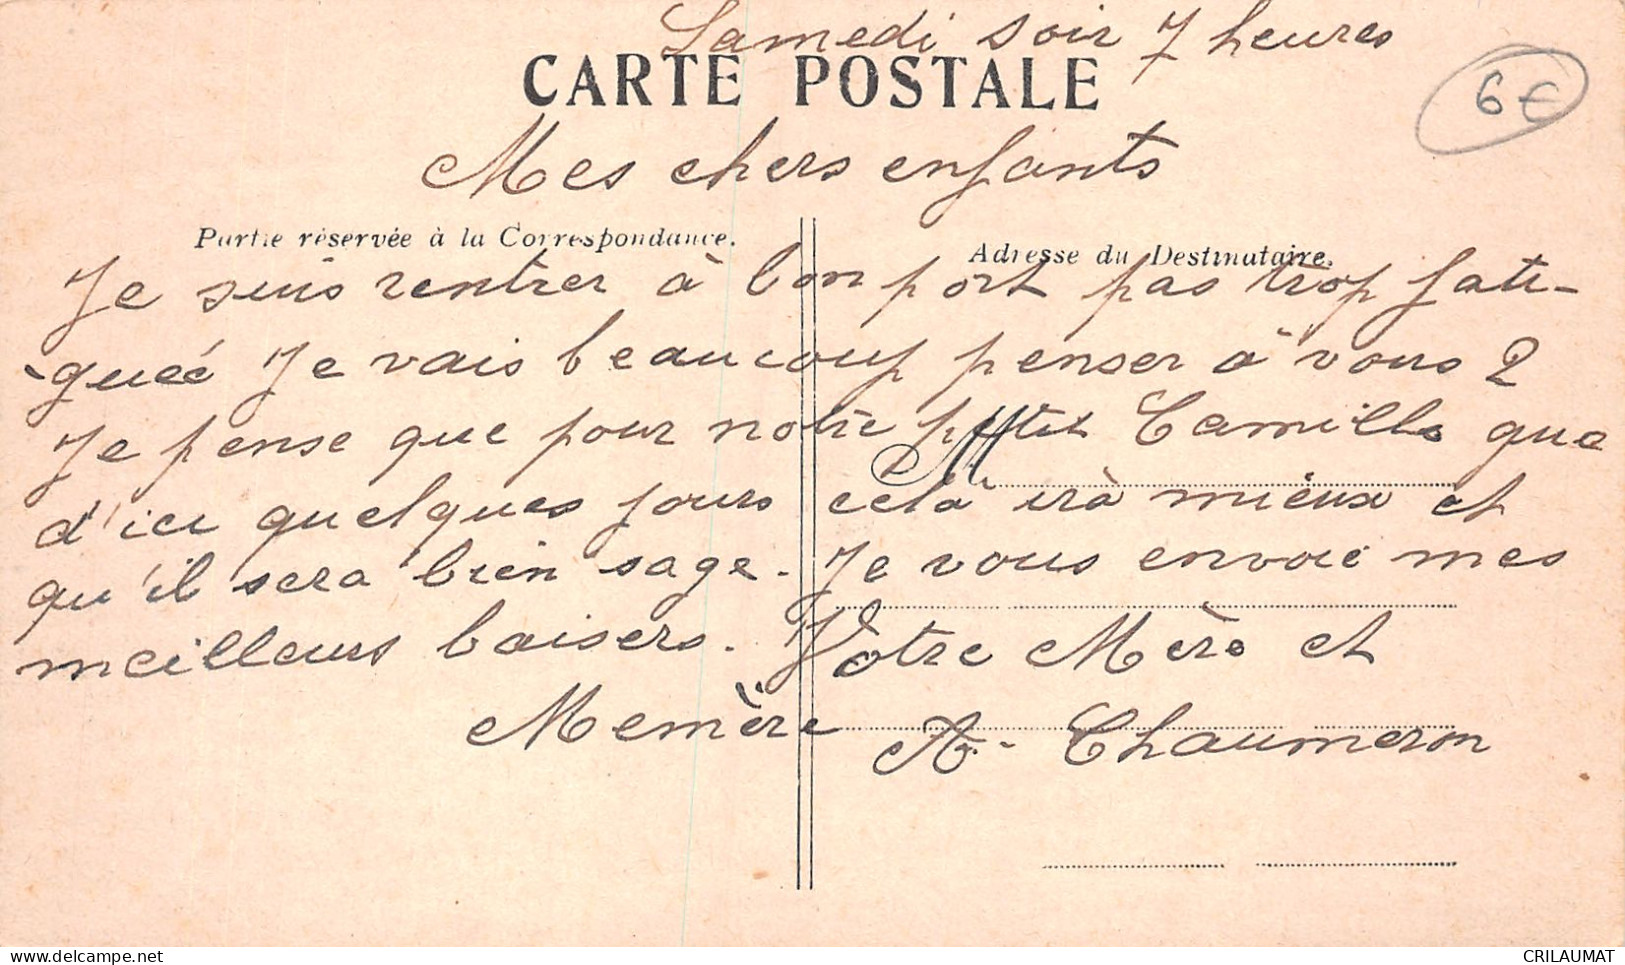 Samedi soir 7 heures
CARTE POSTALE
6€
Mes chers enfants
Partie réservée à la Correspondance.
Adresse du Destinataire.
Je suis rentrer à bon port pas trop fati-
-guée Je vais beaucoup penser à vous 2
Je pense que pour notre petit Camille que
d'ici quelques jours cela irà mieux et
qu'il sera bien sage. Je vous envoie mes
meilleurs baisers. Votre Mère et
Memère
A. Chaumeron
delcampe.net
CRILAUMAT